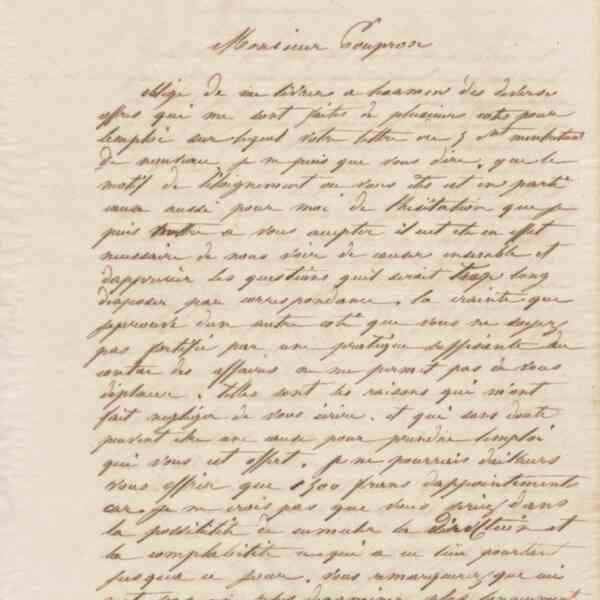 Monsieur Coupron
obligé de me livrer a l'examen des diverses
offres qui me sont faites de plusieurs cotés pour
l'emploi sur lequel votre lettre du 3 c.nt m'entretient
de nouveau, je ne puis que vous dire, que le
motif de l'éloignement ou vous êtes est en partie
cause aussi pour moi de l'hésitation que je
puis mettre a vous accepter il eut été en effet
nécessaire de nous voir de causer ensemble et
d'apprécier les questions qu'il serait trop long
d'exposer par correspondance, la crainte que
j'eprouve d'un autre coté que vous ne soyez
pas fortifié par une pratique suffisante du
des affaires ne me permet pas de vous
déplacer. telles sont les raisons qui m'ont
fait négliger de vous écrire, et qui sans doute
peuvent être une cause pour prendre l'emploi
qui vous est offert, je ne pourrais d'ailleurs
vous offrir que 1500 francs d'appointements
car je ne crois pas que vous seriez dans
la possibilité de cumuler la direction et
la comptabilité ce qui a eu lieu pourtant
jusqu'a ce jour. vous remarquerez que ce